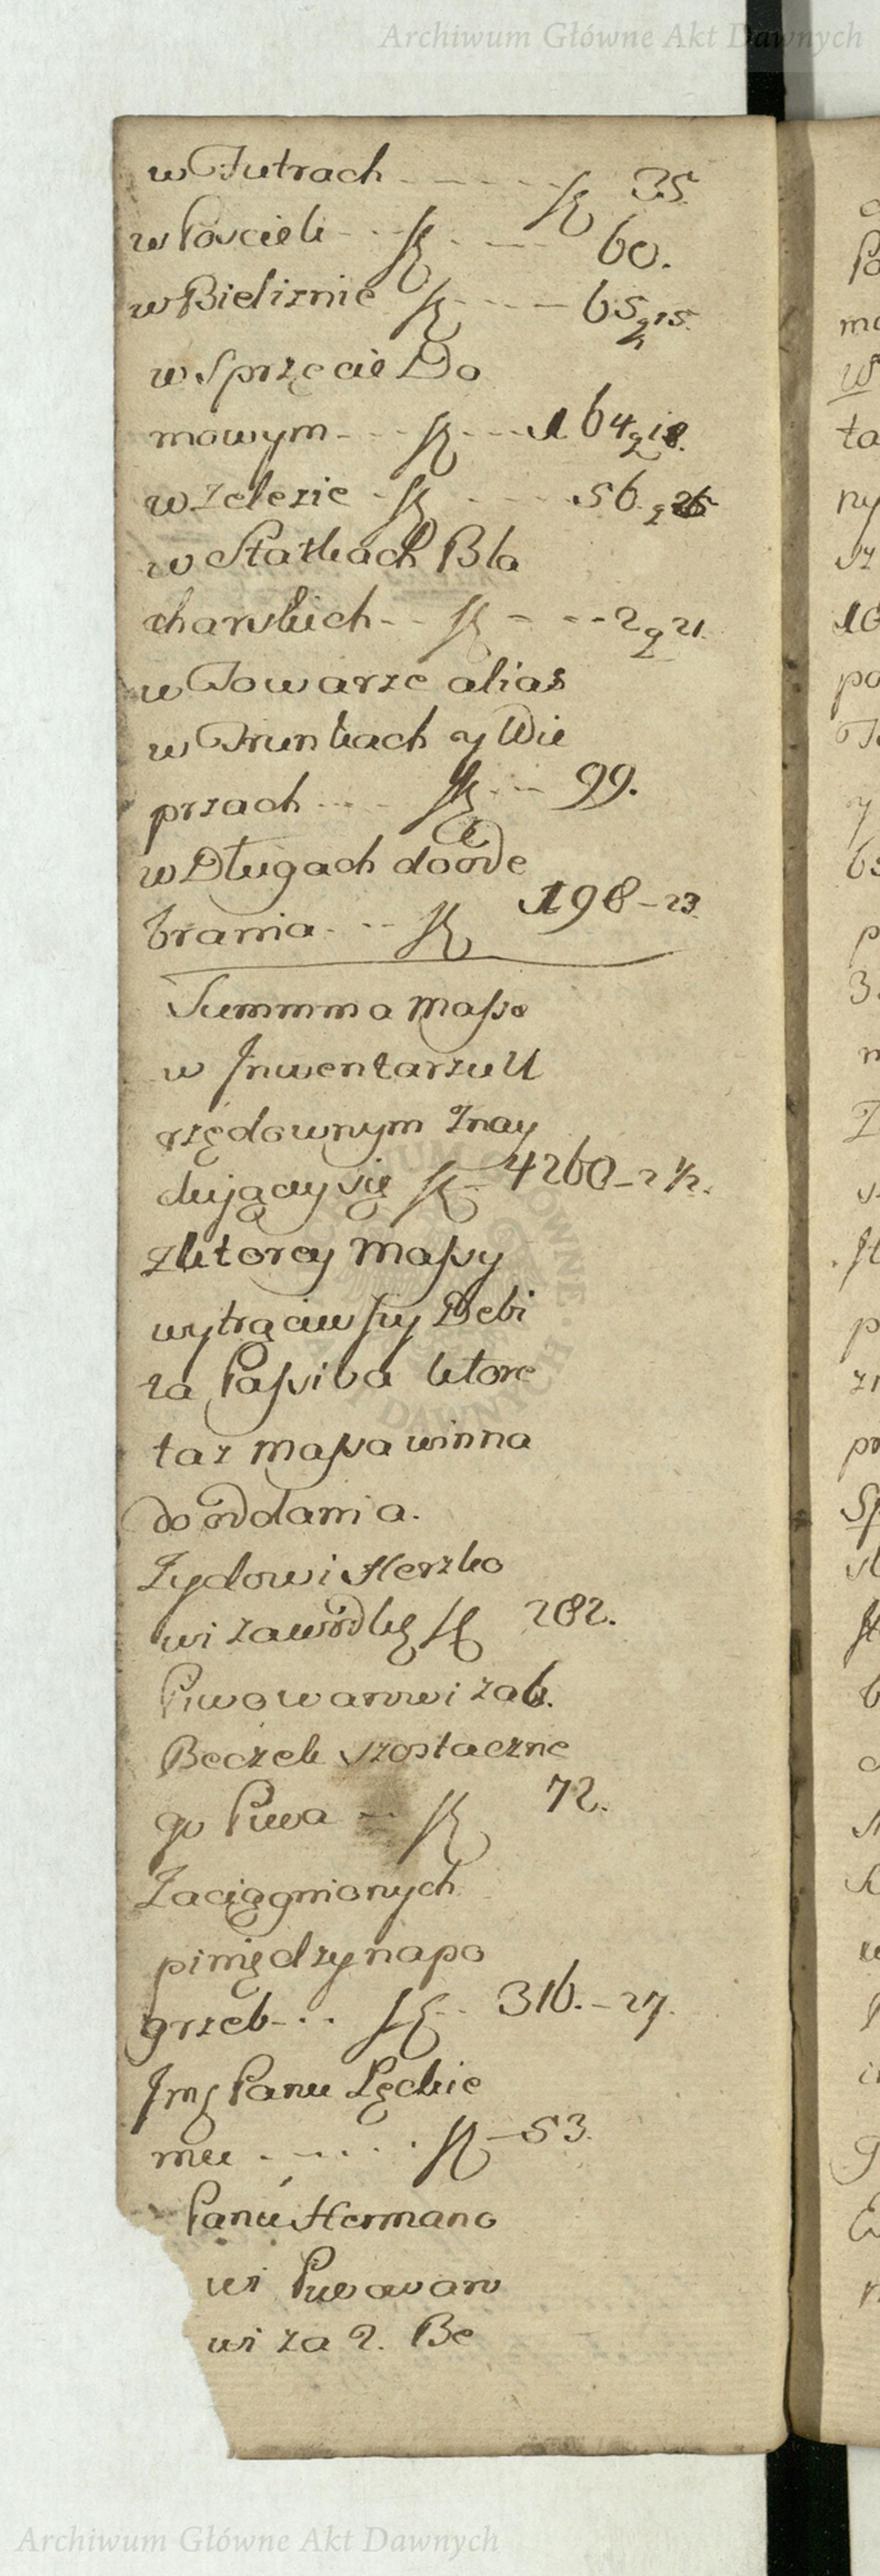 Archiwum Główne Akt Dawnych
w Futrach - - - - - fl 35.
w Poscieli - - - fl - - - 60.
w Bieliznie fl - - - 65 g 15.
w Sprzęcie Do
mowym - - - fl - - - 164 g 18.
w Zelezie - fl - - - 56. g 26
w Statkach Bla
charskich - - fl - - - 2 g 21.
w Towarze alias
w Trunkach y Wie
przach - - - fl - - - 99.
w Długach do ode
brania - - - fl 198 - 23.
Summma Masse
w Inwentarzu U
rzędownym Znay
duiący się fl - 4260 - 2 ½.
z ktorey Massy
wytrąciwszy Debi
ta Passiva ktore
taz Massa winna
do oddania.
Zydowi Herszko
wi za wódkę fl 282.
Piwowarowi za 6.
Beczek szostaczne
go Piwa - fl 72.
Zaciągnionych
piniędzy na po
grzeb - . . fl - 316. - 27.
Jmę Panu Lęckie
mu - - - . . . fl - 53.
Panu Hermano
wi Piwowaro
wi za 2. Be
Archiwum Główne Akt Dawnych